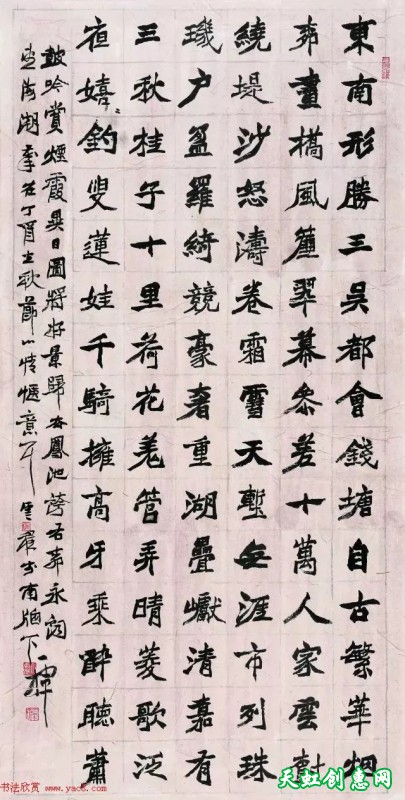 東南形勝三吳都會錢塘自古繁華烟
柳畫橋風簾翠幕參差十萬人家雲樹
繞堤沙怒濤卷霜雪天塹無涯市列珠
璣户盈羅綺競豪奢重湖疊巘清嘉有
三秋桂子十里荷花羌管弄晴菱歌泛
夜嬉〻釣叟蓮娃千騎擁高牙乘醉聽蕭
鼓吟賞煙霞異日圖將好景歸去鳳池誇右柳永詞
望海潮 丁酉 秋節 情愜意 書 南牕下
书法欣赏
www.yac8.com
天虹创惠网